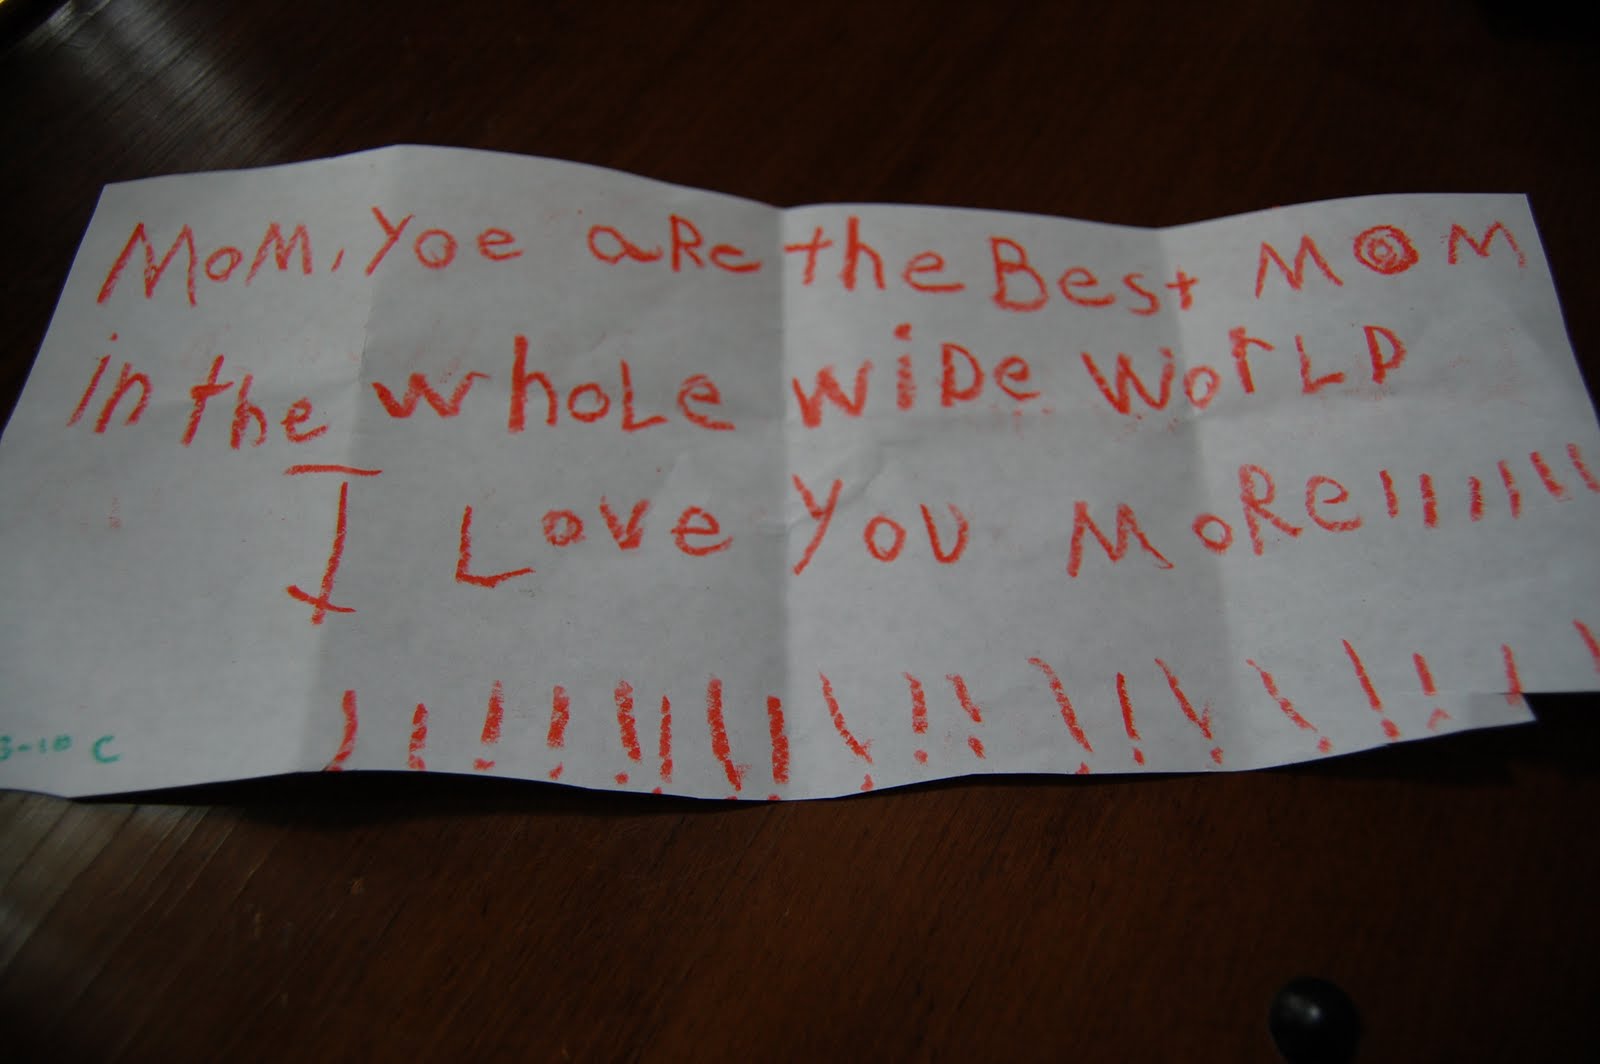 MoM, yoe aRe the Best MOM
in the whoLe wiDe WorLD
I Love you MoRe!!!!!!
!!!!!!!!!!!!!!!!!!!
C